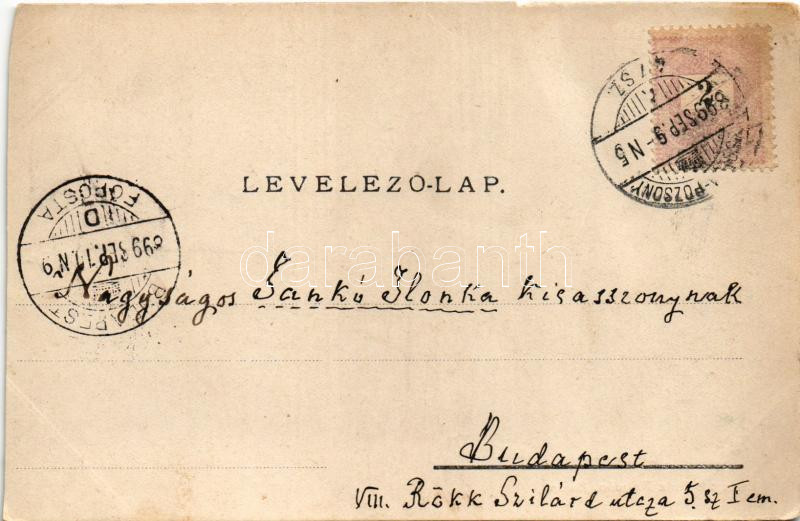 LEVELEZO-LAP.
-POZSONY
899 SEP. 9-N5
FŐPOSTA
D
899 SEP. 11. N9
Nagyságos Sankó Ilonka kisasszonynak
Budapest
VIII. Rökk Szilárd utcza 5. sz I em.
darabanth